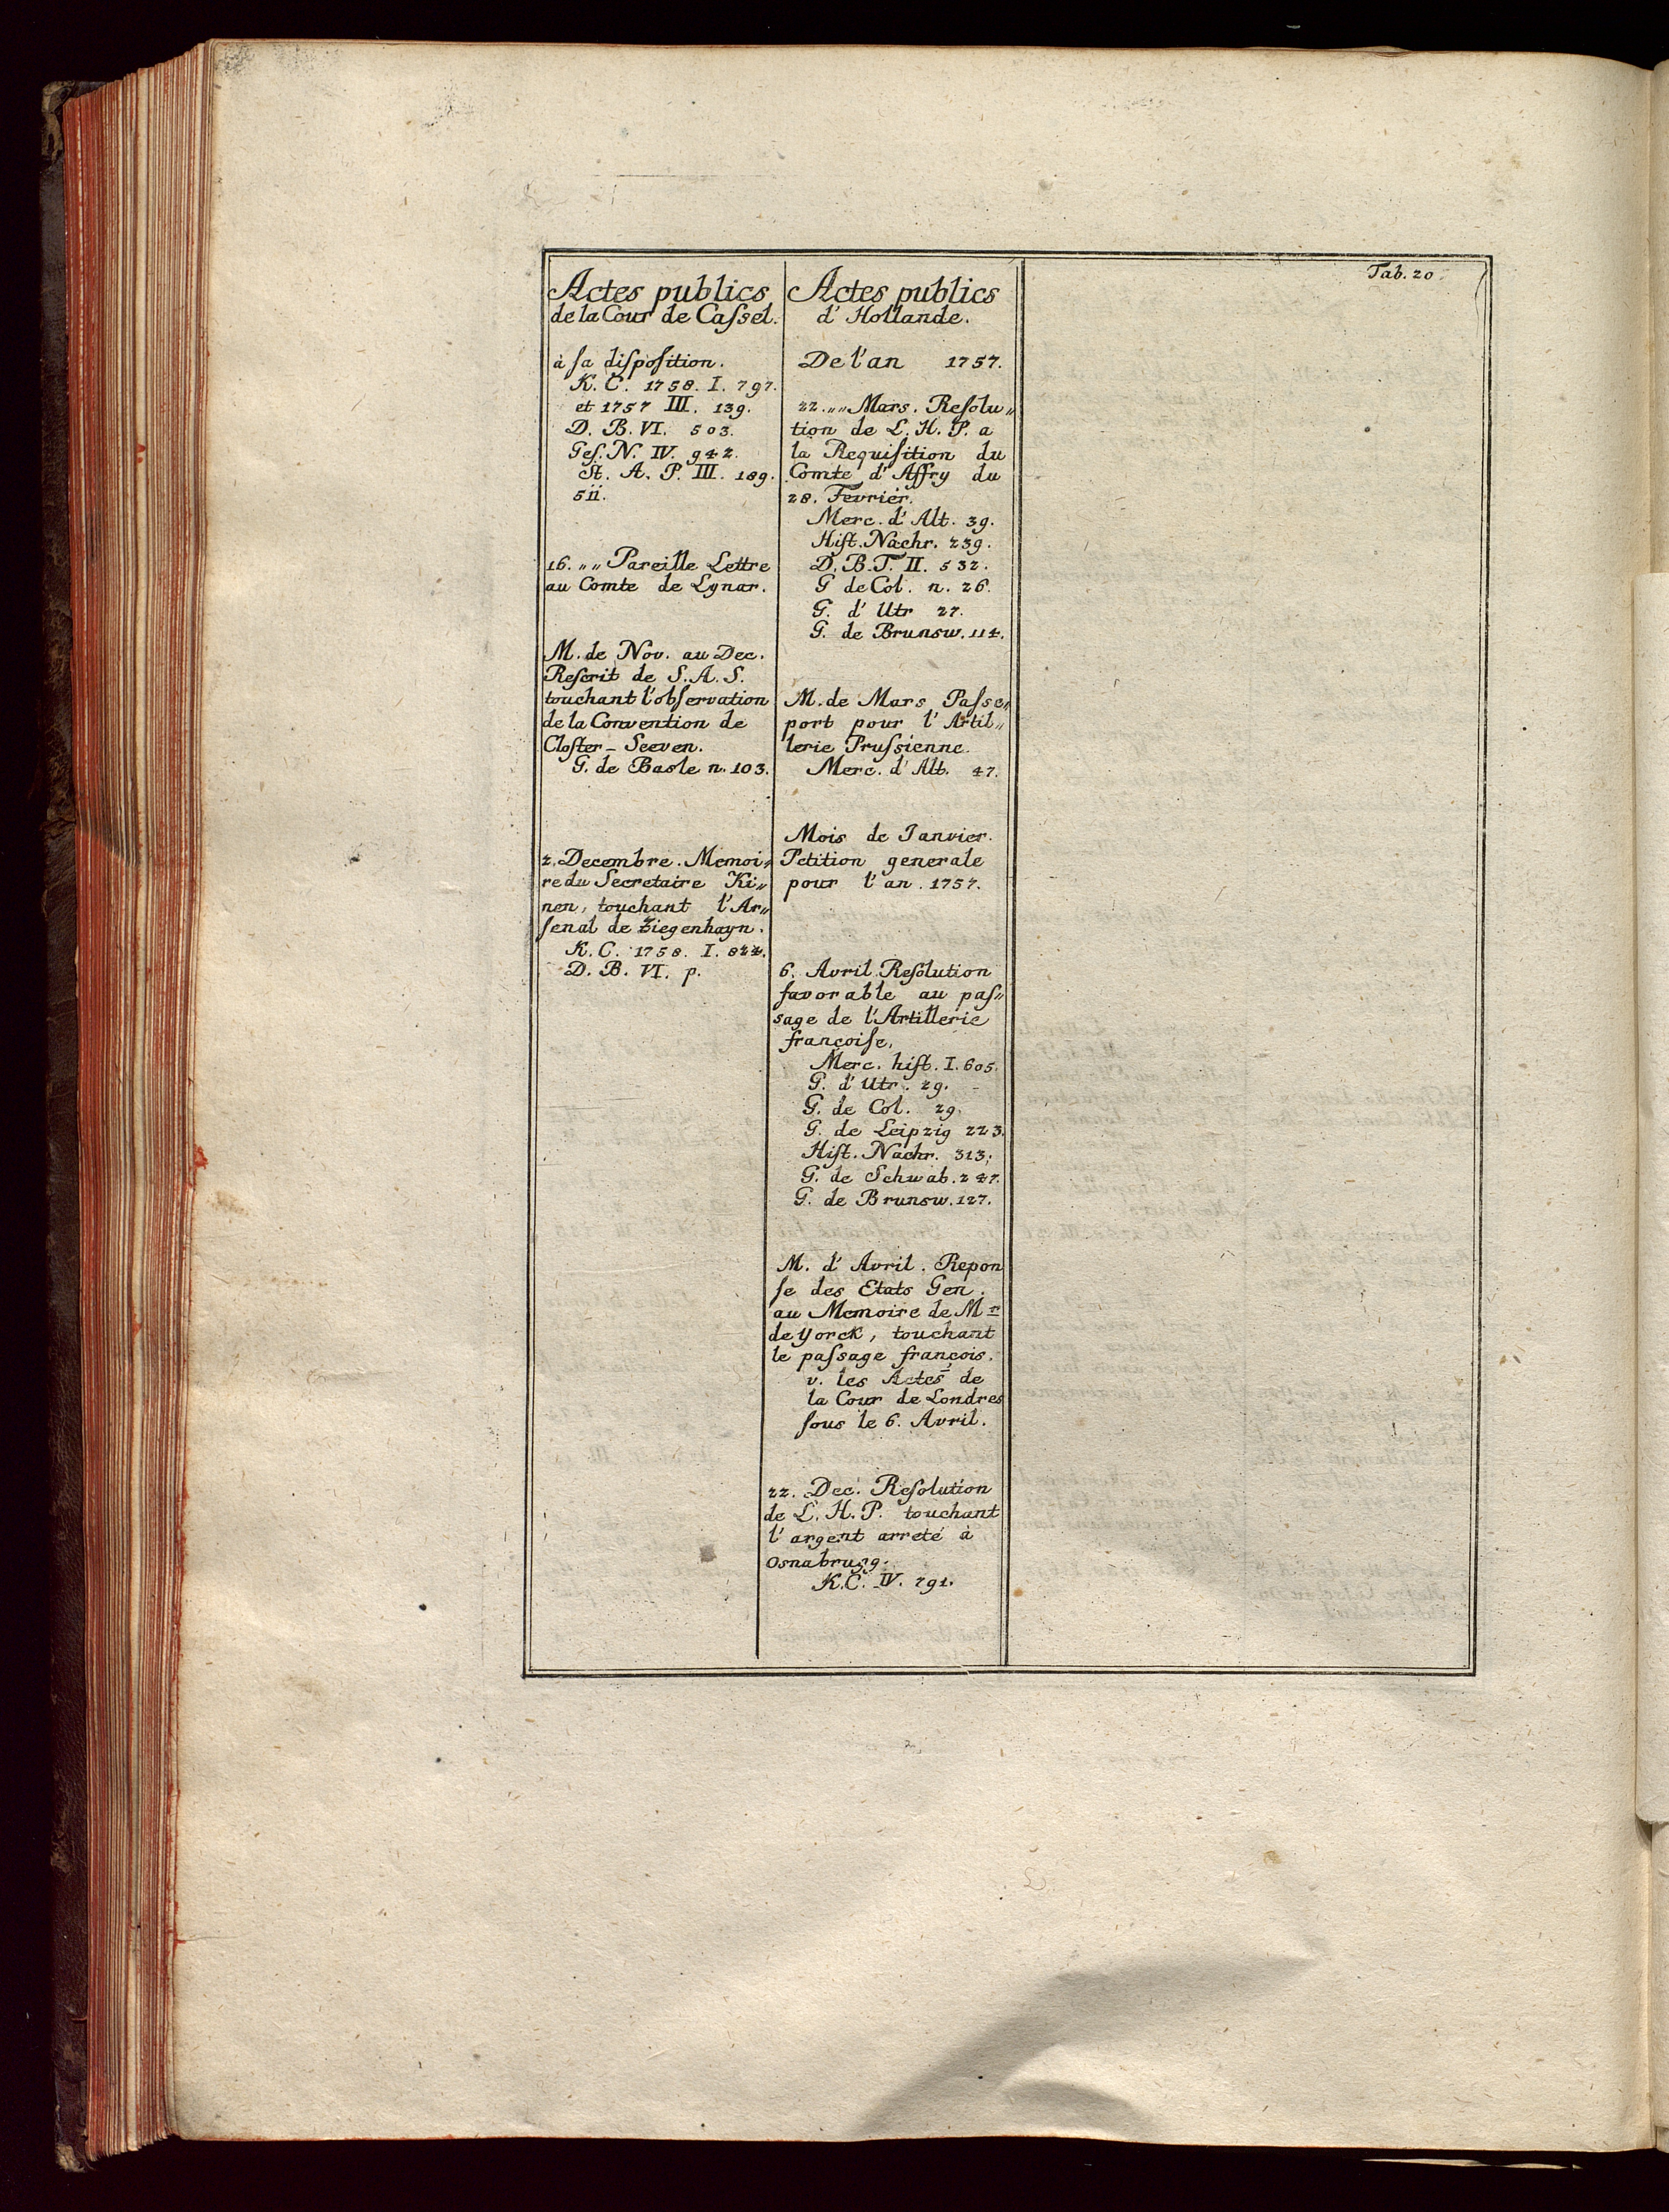 Tab. 20.
Actes publics
de la Cour de Caſsel.
à ſa diſpoſition.
K. C. 1758. I. 797.
et 1757 III. 139.
D. B. VI. 503.
Geſ. N. IV. 942.
St. A. P. III. 189.
511.
16. „„ Pareille Lettre
au Comte de Lynar.
M. de Nov. au Dec.
Reſcrit de S. A. S.
touchant l'obſervation
de la Convention de
Cloſter-Seeven.
G. de Basle n. 103.
2. Decembre. Memoi„
re du Secretaire Ki„
nen, touchant l'Ar„
ſenal de Ziegenhayn.
K. C. 1758. I. 822.
D. B. VI. p.
Actes publics
d'Hollande.
De l'an 1757.
22. „„ Mars. Reſolu„
tion de L. H. P. a
la Requiſition du
Comte d'Affry du
28. Fevrier.
Merc. d'Alt. 39.
Hiſt. Nachr. 239.
D. B. T. II. 532.
G de Col. n. 26.
G. d'Utr 27.
G. de Brunsw. 114.
M. de Mars Paſse„
port pour l'Artil„
lerie Pruſsienne.
Merc. d'Alt. 47.
Mois de Janvier.
Petition generale
pour l'an. 1757.
6. Avril. Reſolution
favorable au paſ„
sage de l'Artillerie
françoiſe.
Merc. hiſt. I. 605.
G. d'Utr. 29.
G. de Col. 29.
G. de Leipzig 223.
Hiſt. Nachr. 313.
G. de Schwab. 247.
G. de Brunsw. 127.
M. d'Avril. Repon
ſe des Etats Gen.
au Memoire de Mr
de Yorck, touchant
le paſsage françois.
v. les Actes de
la Cour de Londres
ſous le 6. Avril.
22. Dec. Reſolution
de L. H. P. touchant
l'argent arreté à
Osnabrugg.
K. C. IV. 791.